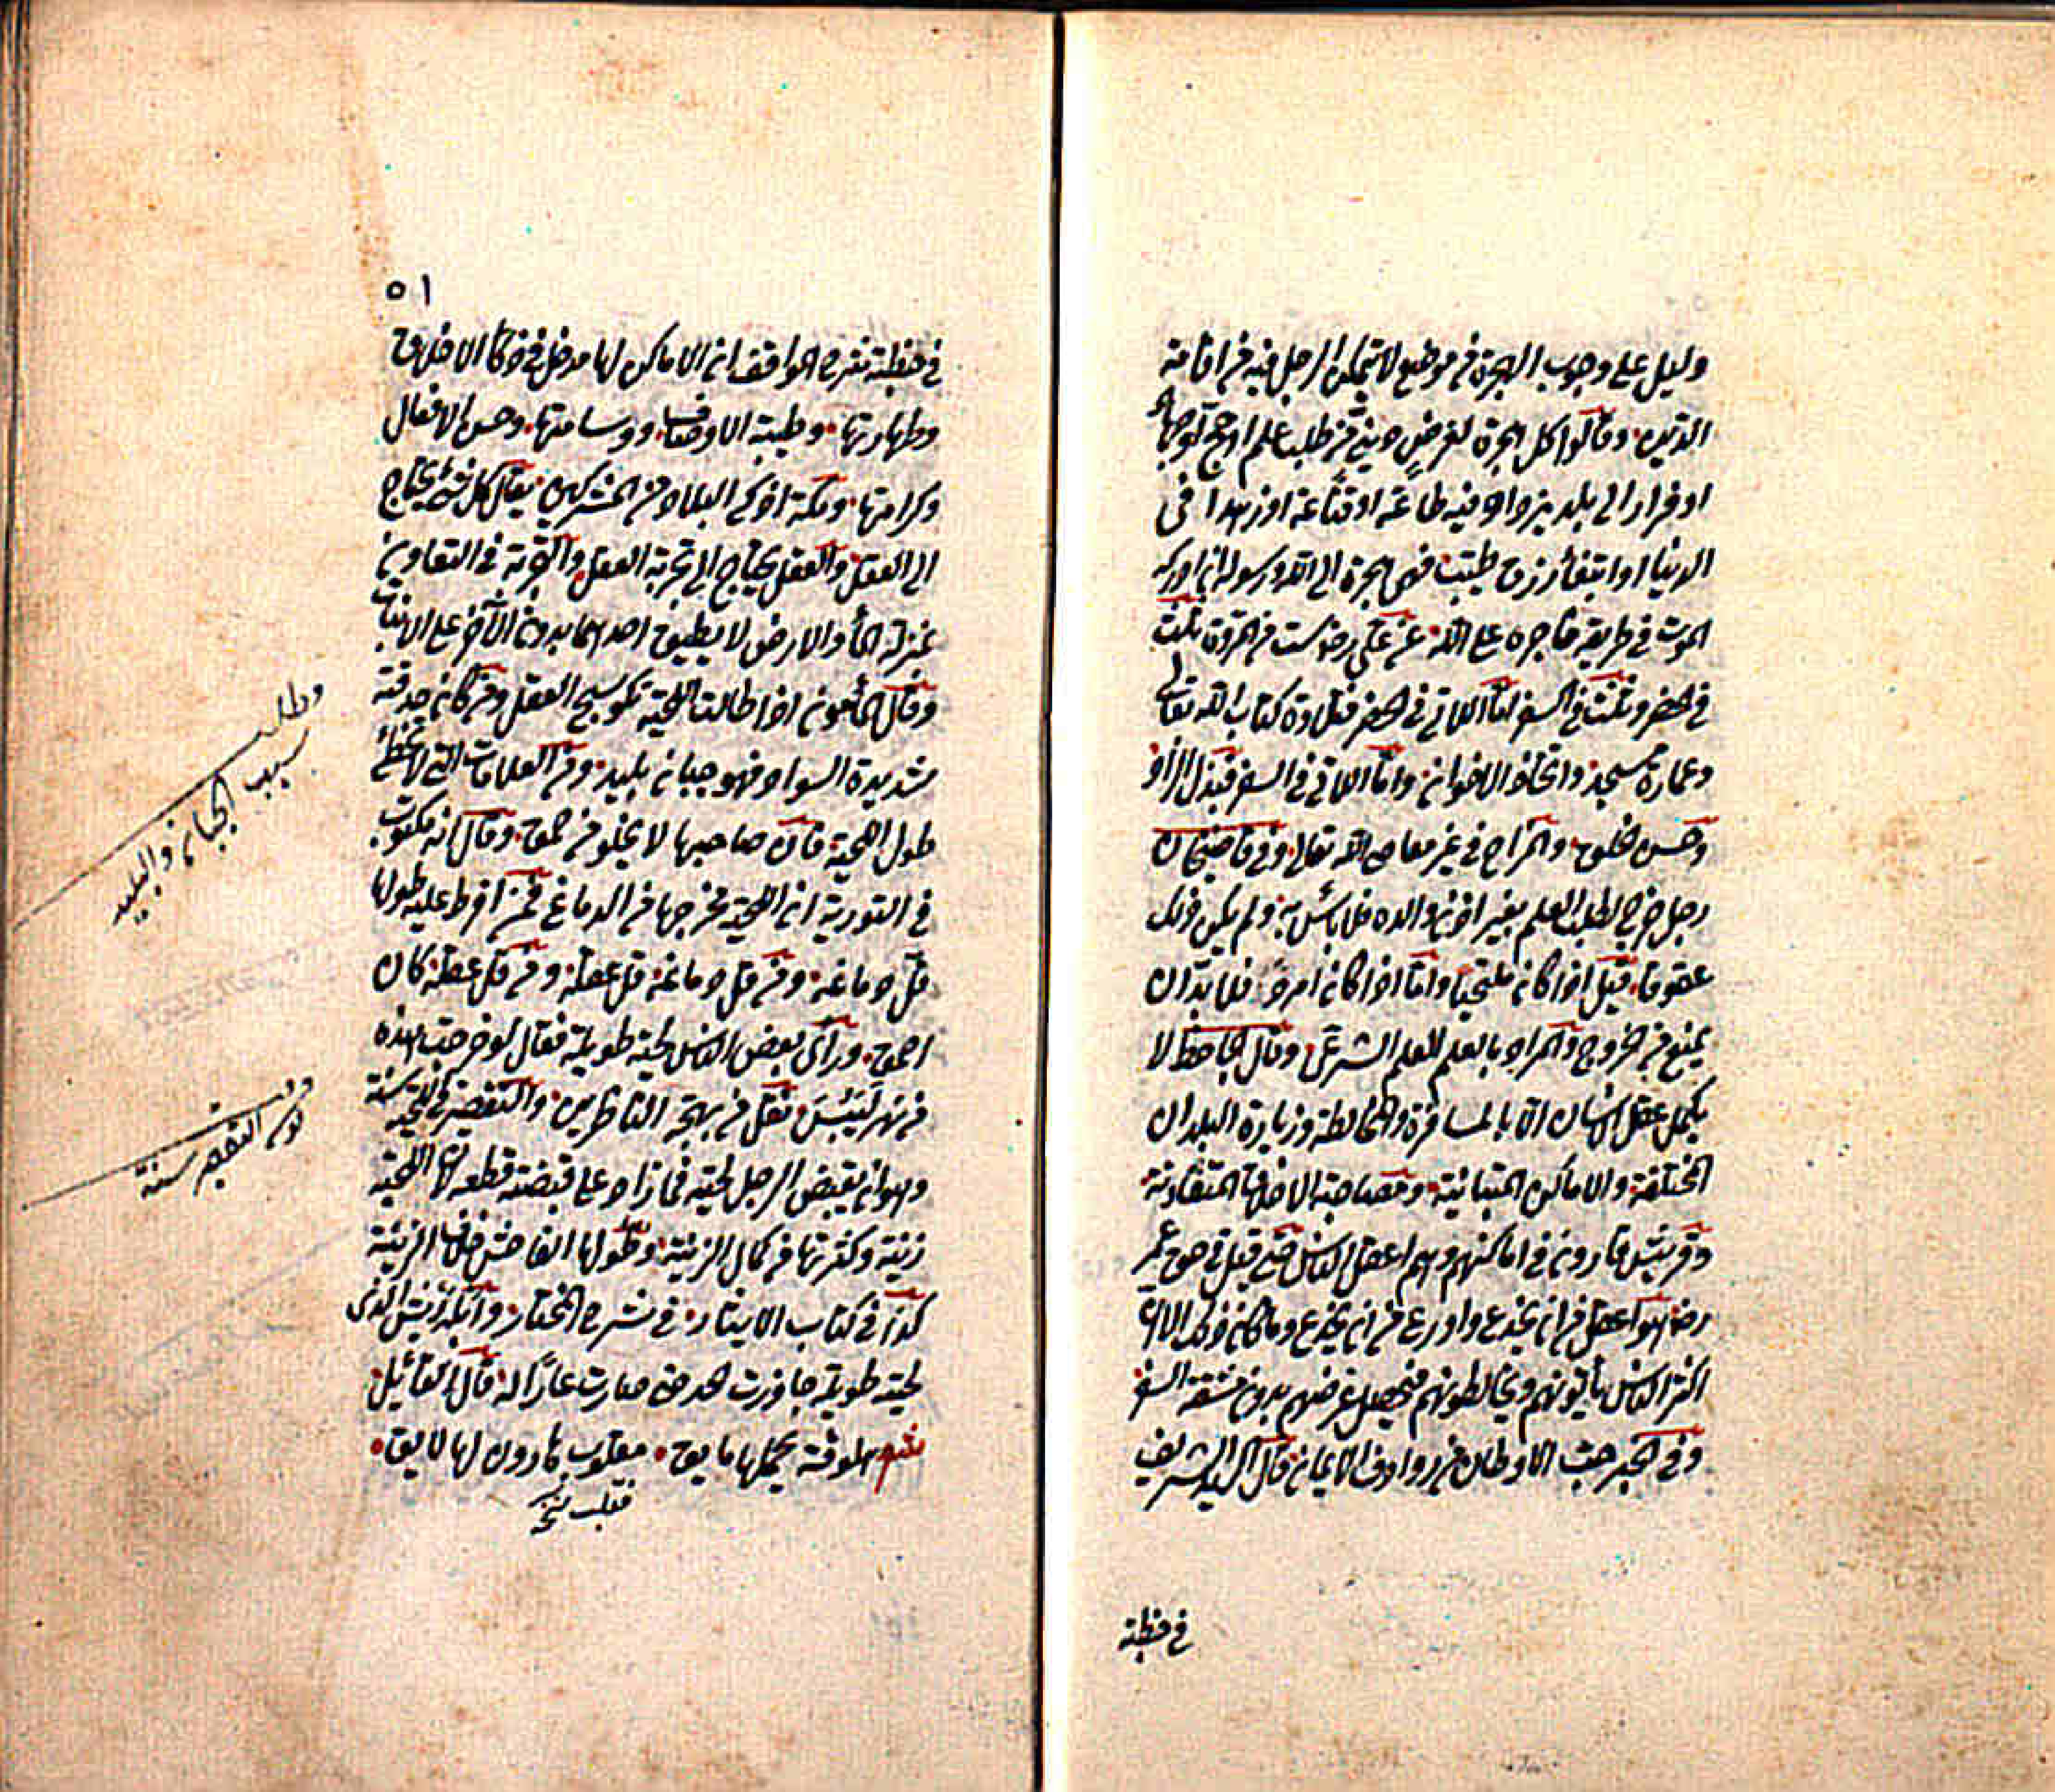 دليل على وجوب الهجرة من موضع لا يتمكن الرجل فيه من اقامة
الدين وقالوا كل هجرة لغرض دينى من طلب علم او حج او جهاد
او فرار الى بلد يزداد فيه طاعة او قناعة او زهدا فى
الدنيا او ابتغاء رزق طيب فهى هجرة الى الله ورسوله ان ادركه
الموت فى طريقه فاجره على الله عن على رض ست من المروة ثلث
فى الحضر وثلث فى السفر اما اللاتى فى الحضر فتلاوة كتاب الله تعالى
وعمارة مسجد واتخاذ الاخوان واما اللاتى فى السفر فبذل الزاد
وحسن الخلق والمزاح فى غير معاصى الله تعالى وفى قاضيخان
رجل خرج لطلب العلم بغير اذن والده فلا بأس به ولم يكن ذلك
عقوقا قيل اذا كان ملتحيا واما اذا كان امرد فلا بد ان
يمنع من الخروج والمراد بالعلم العلم الشرعى وقال الجاحظ لا
يكمل عقل الانسان الا بالمسافرة والمخالطة وزيارة البلدان
المختلفة والاماكن المتباينة ومصاحبة الاخلاق المتفاوتة
وقريش قارون فى اماكنهم وهم اعقل الناس حتى قيل فى حق عمر
رض هو اعقل من ان يخدع واورع من ان يخدع وما كان ذلك الا لان
اكثر الناس يأتونهم ويخالطونهم فيحصل غرضهم بدون مشقة السفر
وفى الخبر حب الاوطان من الايمان قال السيد الشريف
فى خطبة
٥١
فى خطبة شرح المواقف ان الاماكن لها مدخل فى ذكاء الاخلاق
وطهارتها وطيبة الاوصاف ووسامتها وحسن الافعال
وكرامتها ومكة اذكى البلاد من المشركين يقال كل شئ يحتاج
الى العقل والعقل يحتاج الى تجربة العقل والتجربة فى التعاون
بمنزلة الماء والارض لا يطيق احدهما بدون الآخر على الانبات
وقال المأمون اذا طالت اللحية تكوسج العقل ومن كان حدقته
شديدة السواد فهو جبان بليد ومن العلامات التى لا تخطئ
طول اللحية فان صاحبها لا يخلو من حمق وقال انه مكتوب
فى التورية ان اللحية مخرجها من الدماغ فمن افرط عليه طولها
قل دماغه ومن قل دماغه قل عقله ومن قل عقله كان
احمق ورأى بعض الناس لحية طويلة فقال لو خرجت هذه
من نهر ليبس نقل من بهجة الناظرين والتقصير فى اللحية سنة
وهو ان يقبض الرجل لحيته فما زاد على قبضته قطعه لان اللحية
زينة وكثرتها من كمال الزينة وطولها الفاحش خلاف الزينة
كذا فى كتاب الايثار فى شرح المختار والذى
لحيته طويلة جاوزت الحد حتى صارت عارا له قال القائل
شعر بملوقة يحملها مايق
فقلب نخ
مطلب
سبب الجبان والبليد
كون التقصير سنة